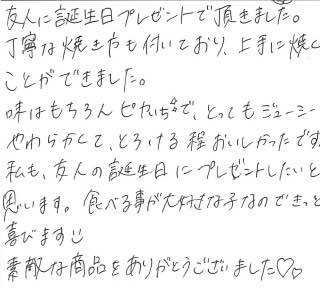 友人に誕生日プレゼントで頂きました。
丁寧な焼き方も付いており、上手に焼く
ことができました。
味はもちろんピカいちで、とってもジューシー
やわらかくて、とろける程おいしかったです
私も、友人の誕生日にプレゼントしたいと
思います。食べる事が大好きな子なのできっと
喜びます
素敵な商品をありがとうございました♡♡